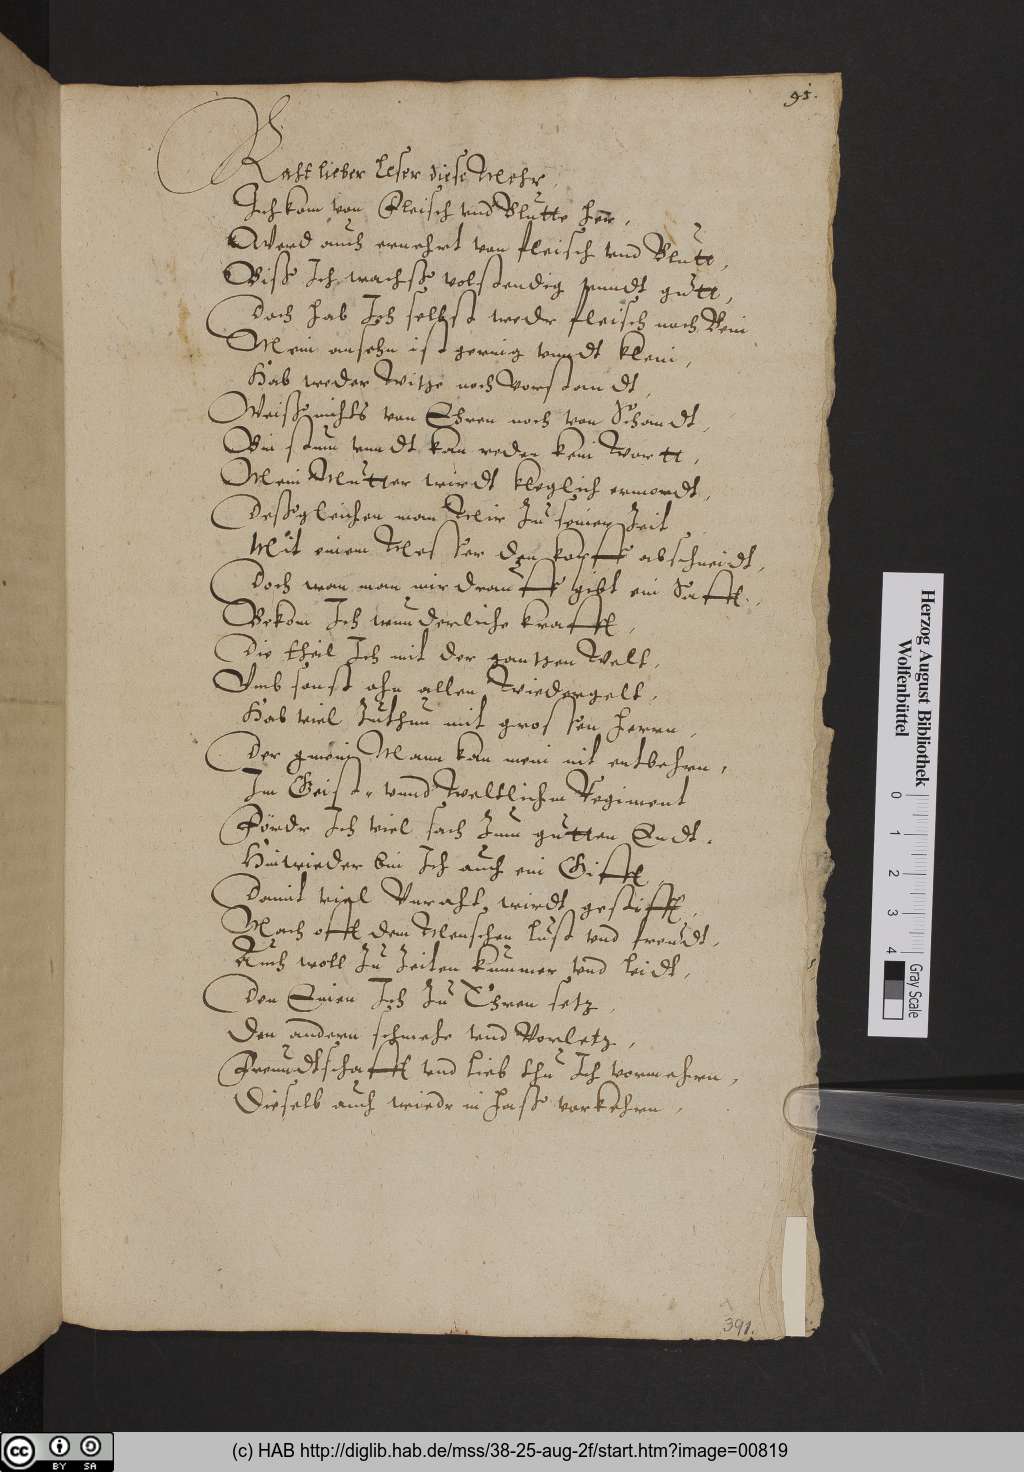 95.
Raht lieber leser diese Mehr,
Ich kom von Fleisch vnd Blutte her,
Werd auch ernehrt von fleisch vnd Blutt,
Biß Ich wachß volstendig vnndt gutt,
Doch hab Ich selbst wedr fleisch noch Bein
Mein ansehn ist gering vnndt klein,
Hab weder Witze noch Vorstandt,
Weiß nichts von Ehren noch von Schandt,
Bin stum vnndt kan reden kein Wortt,
Mein Mutter wirdt kleglich ermordt,
Deßgleichen man Mir Zu seiner Zeit
Mit einem Messer den kopff abschneidt,
Doch wan man mir drauff gibt ein Safft,
Bekom Ich wunderliche krafft,
Die theil Ich mit der gantzen Welt,
Vmb sonst ohn allen Wiedergelt,
Hab viel Zuthun mit grossen herrn,
Der gmein Mann kan mein nit entbehrn,
Im Geist- vnnd Weltlichem Regiment
Fördr Ich viel sach Zum gutten Endt.
Hinwieder bin Ich auch ein Gifft,
Damit viel Vnraht wirdt gestifft,
Mach offt dem Menschen lust vnd freudt,
Auch woll Zu Zeiten kummer vnd leidt,
Den Einen Ich Zu Ehren setz,
Den andern schmehe vnd Vorletz,
Freundtschafft vnd lieb thu Ich vormehrn,
Dieselb auch wiedr in haß vorkehrn,
391.
Herzog August Bibliothek
Wolfenbüttel
0 1 2 3 4
Gray Scale
cc BY SA
(c) HAB http://diglib.hab.de/mss/38-25-aug-2f/start.htm?image=00819